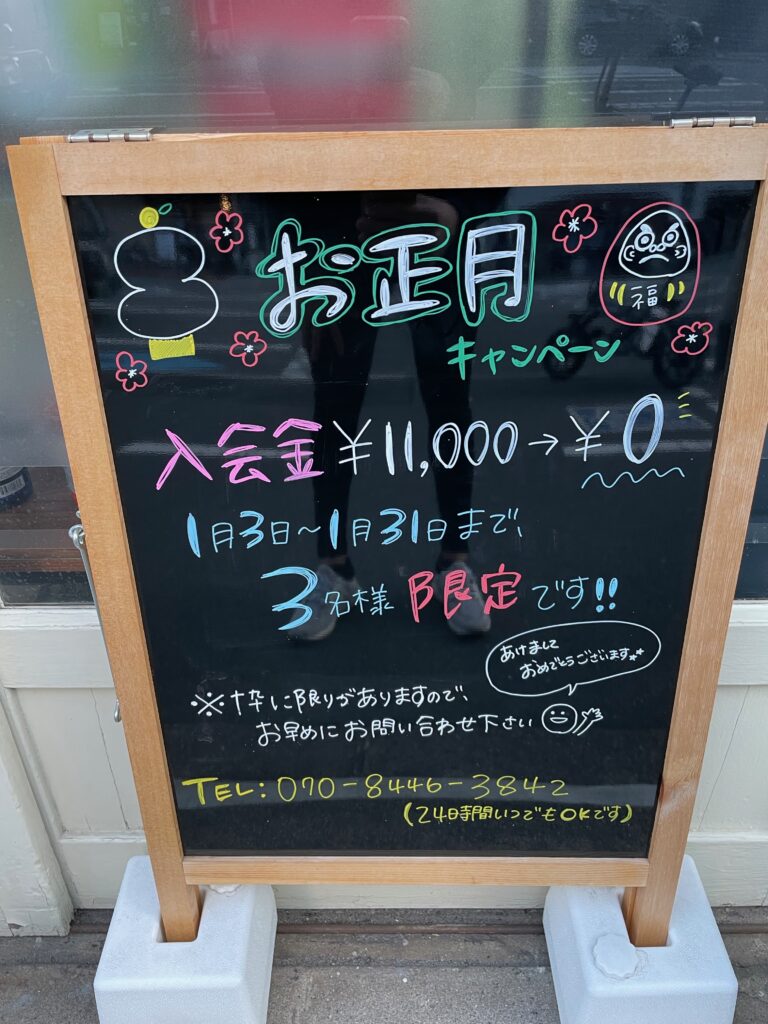 お正月
福
キャンペーン
入会金 ¥11,000→¥0
1月3日~1月31日まで、
3名様 限定です!!
あけまして
おめでとうございます
※枠に限りがありますので、
お早めにお問い合わせ下さい
TEL:070-8446-3842
(24時間いつでもOKです)